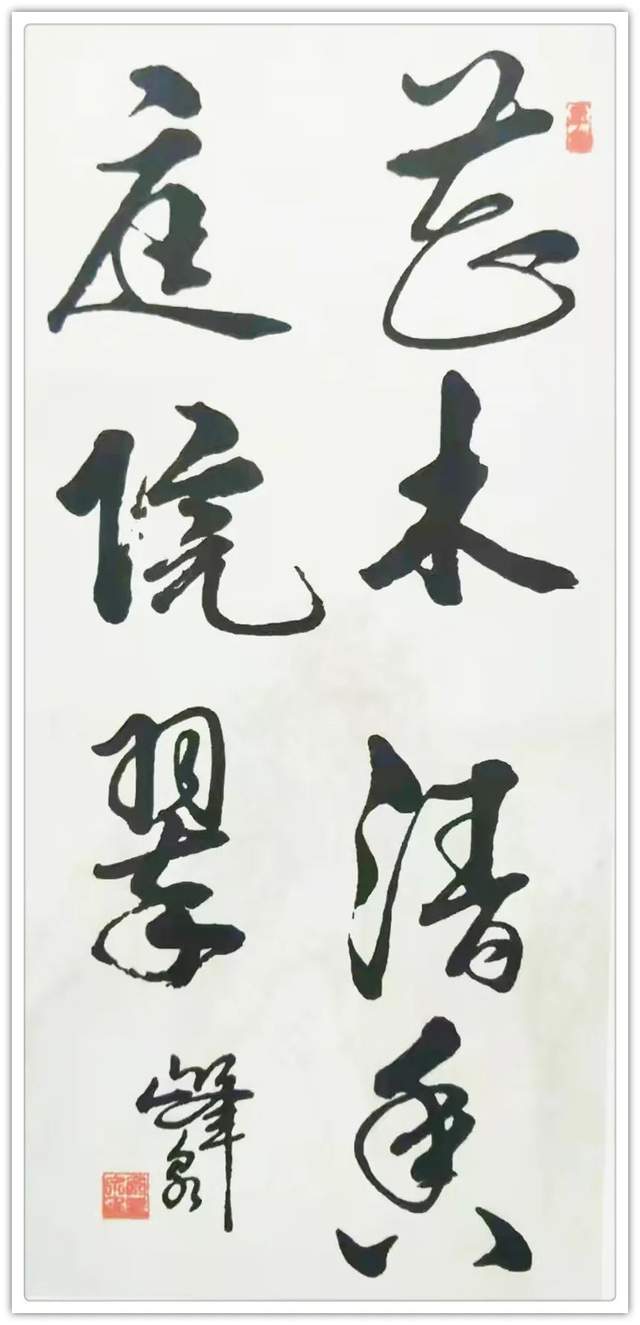 花木清香
庭院翠
峰泉